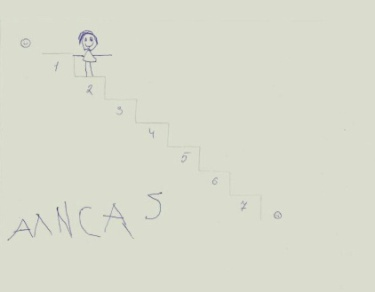 1
2
3
4
5
6
7
AMNCAS